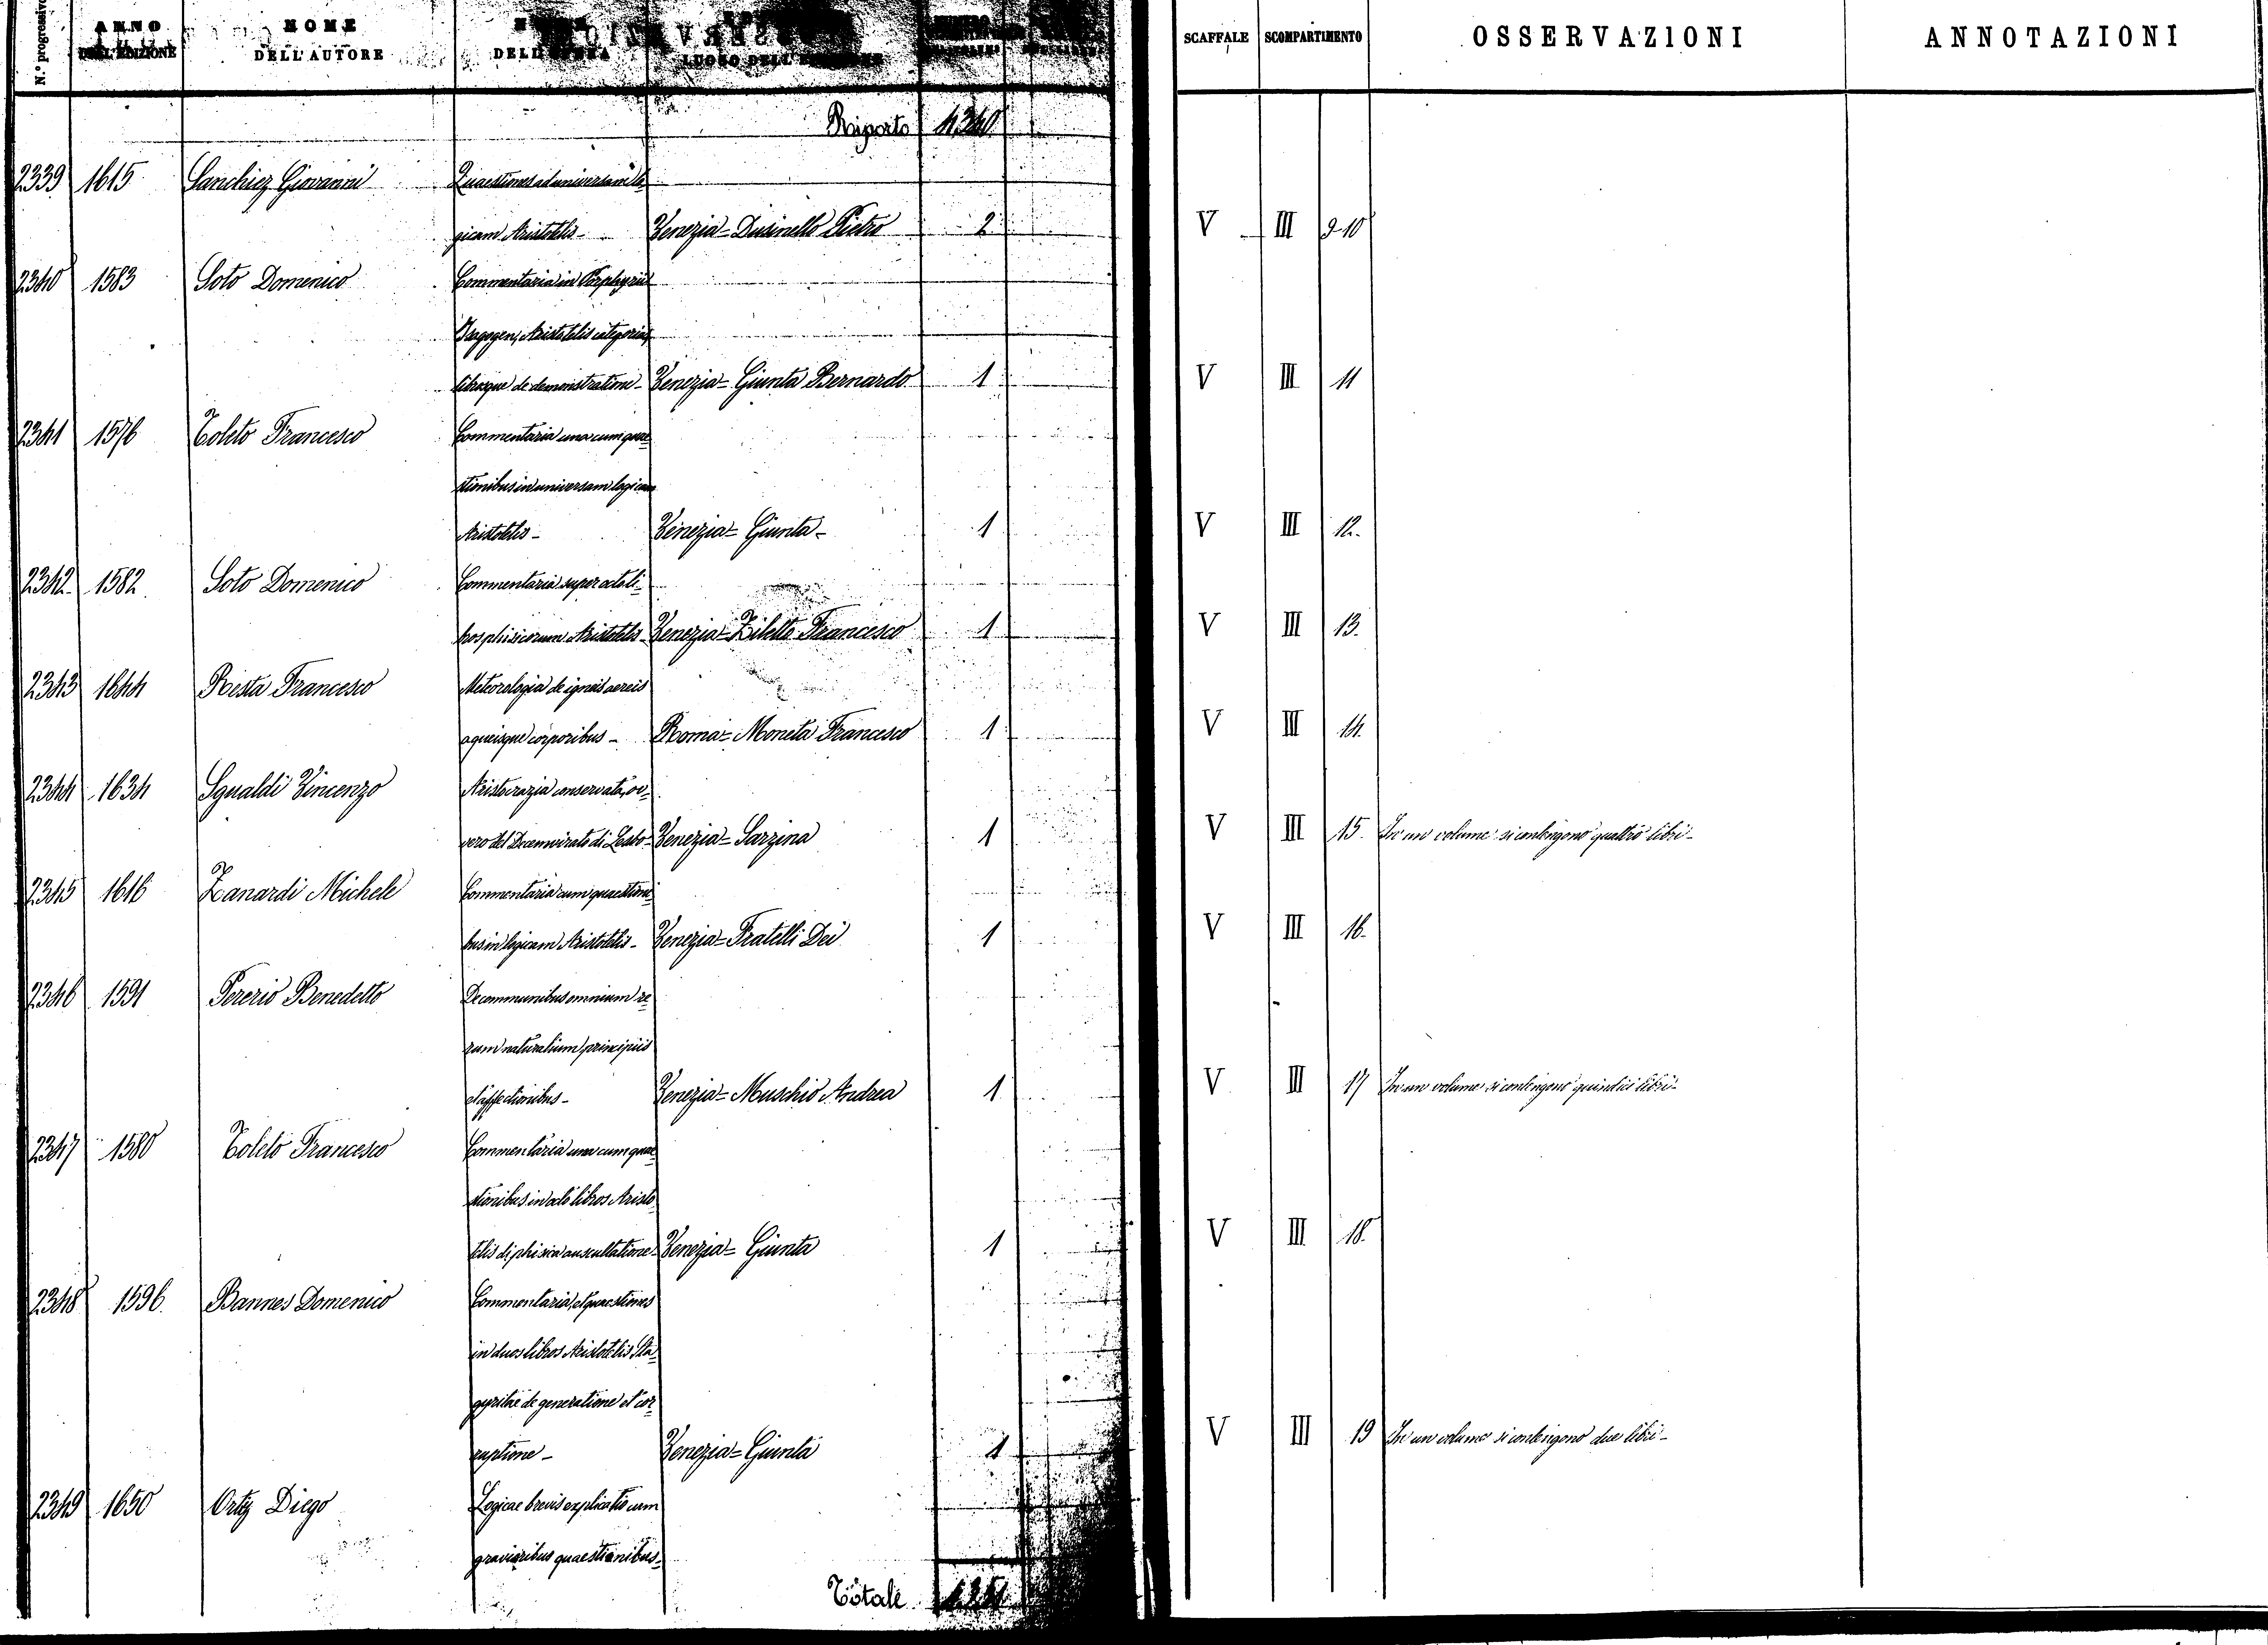 N.° progressivo ANNO DELL'EDIZIONE NOME DELL'AUTORE SCAFFALE SCOMPARTIMENTO OSSERVAZIONI ANNOTAZIONI
Riporto 4340
2339 1615 Sanchiez Giovanni Quaestiones ad universam lo-
gicam Aristotelis - Venezia = Dusinello Pietro 2 V III 9-10
2340 1583 Soto Domenico Commentaria in Porphyrii
Isagogen, Aristotelis categorias,
librosque de demonstratione - Venezia = Giunta Bernardo 1 V III 11
2341 1576 Toleto Francesco Commentaria una cum quae-
stionibus in universam logicam
Aristotelis - Venezia = Giunta - 1 V III 12.
2342 1582 Soto Domenico Commentaria super octo li-
bros phisicorum Aristotelis - Venezia = Ziletto Francesco 1 V III 13.
2343 1644 Resta Francesco Meteorologia de igneis aereis
aqueisque corporibus - Roma = Moneta Francesco 1 V III 14.
2344 1634 Sgualdi Vincenzo Aristocrazia conservata, ov-
vero del Decemvirato di Lesbo - Venezia = Sarzina 1 V III 15. In un volume si contengono quattro libri -
2345 1616 Zanardi Michele Commentaria cum quaestioni-
bus in logicam Aristotelis - Venezia = Fratelli Dei 1 V III 16.
2346 1591 Pererio Benedetto De communibus omnium re-
rum naturalium principiis
et affectionibus - Venezia = Muschio Andrea 1 V III 17 In un volume si contengono quindici libri -
2347 1580 Toleto Francesco Commentaria una cum quae-
stionibus in octo libros Aristo-
telis di phisica auscultatione - Venezia = Giunta 1 V III 18.
2348 1596. Bannes Domenico Commentaria, et quaestiones
in duos libros Aristotelis Sta-
gyritae de generatione et cor-
ruptione - Venezia = Giunta 1 V III 19 In un volume si contengono due libri -
2349 1650 Ortiz Diego Logicae brevis explicatio cum
gravioribus quaestionibus -
Totale 4351